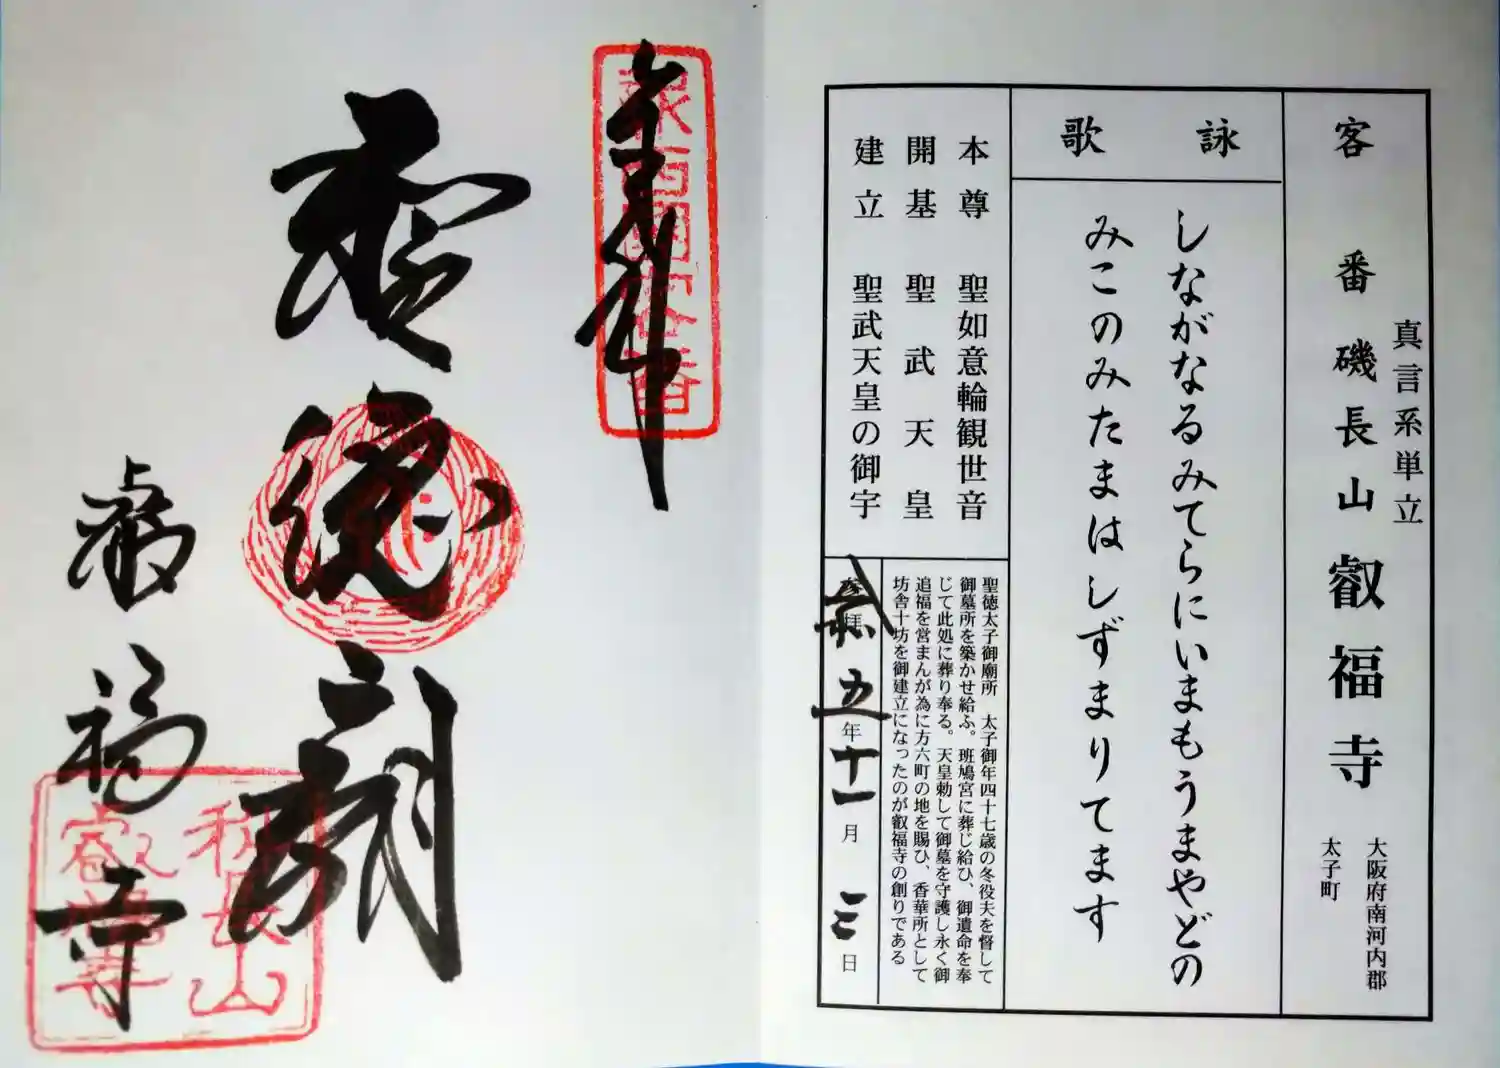 真言系単立
客番 磯長山 叡福寺
大阪府南河内郡
太子町
詠歌
しながなるみてらにいまもうまやどの
みこのみたまはしずまりてます
本尊 聖如意輪観世音
開基 聖武天皇
建立 聖武天皇の御宇
聖徳太子御廟所 太子御年四十七歳の冬役夫を督して
御墓所を築かせ給ふ。班鳩宮に葬じ給ひ、御遺命を奉
じて此処に葬り奉る。天皇勅して御墓を守護し永く御
追福を営まんが為に方六町の地を賜ひ、香華所として
坊舎十坊を御建立になったのが叡福寺の創りである
参拝 五年十一月三日
奉拝
新西国客番
聖徳廟
叡福寺
磯長山
叡福寺